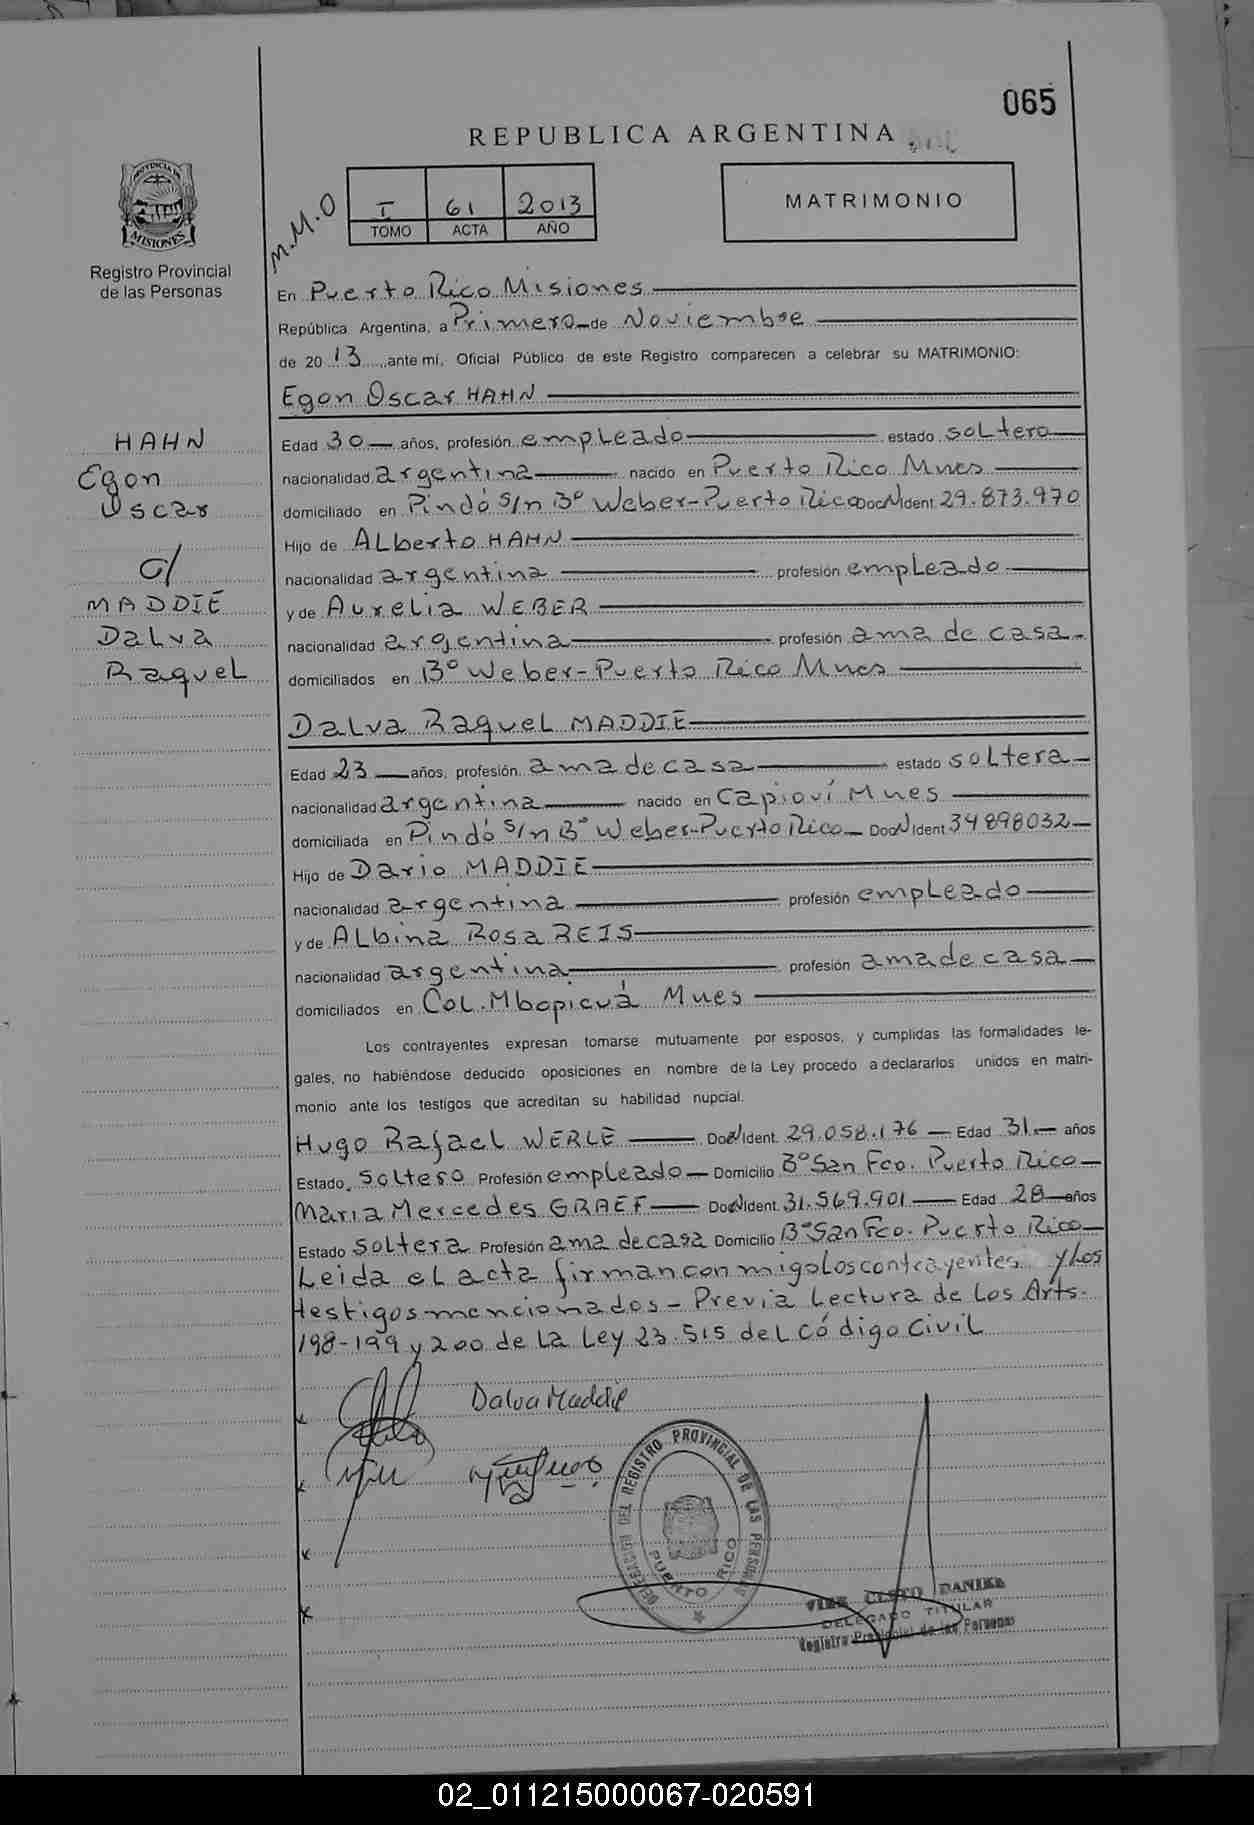 065
REPUBLICA ARGENTINA
PROVINCIA DE
MISIONES
Registro Provincial
de las Personas
M.M.O
I 61 2013
TOMO ACTA AÑO
MATRIMONIO
En Puerto Rico Misiones
República Argentina, a Primero de Noviembre
de 20 13 ante mí, Oficial Público de este Registro comparecen a celebrar su MATRIMONIO:
Egon Oscar HAHN
HAHN
Egon
Oscar
c/
MADDIE
Dalva
Raquel
Edad 30 años, profesión empleado estado soltero
nacionalidad argentina nacido en Puerto Rico Mnes
domiciliado en Pindó s/n Bº Weber-Puerto Rico DocN Ident 29.873.970
Hijo de Alberto HAHN
nacionalidad argentina profesión empleado
y de Aurelia WEBER
nacionalidad argentina profesión ama de casa
domiciliados en Bº Weber-Puerto Rico Mnes
Dalva Raquel MADDIE
Edad 23 años, profesión ama de casa estado soltera
nacionalidad argentina nacido en Capioví Mnes
domiciliada en Pindó s/n Bº Weber-Puerto Rico DocN Ident 34898032
Hijo de Dario MADDIE
nacionalidad argentina profesión empleado
y de Albina Rosa REIS
nacionalidad argentina profesión ama de casa
domiciliados en Col. Mbopicuá Mnes
Los contrayentes expresan tomarse mutuamente por esposos, y cumplidas las formalidades le-
gales, no habiéndose deducido oposiciones en nombre de la Ley procedo a declararlos unidos en matri-
monio ante los testigos que acreditan su habilidad nupcial.
Hugo Rafael WERLE DocN Ident. 29.058.176 Edad 31 años
Estado soltero Profesión empleado Domicilio Bº San Fco. Puerto Rico
Maria Mercedes GRAEF DocN Ident. 31.569.901 Edad 28 años
Estado soltera Profesión ama de casa Domicilio Bº San Fco. Puerto Rico
Leida el acta firman conmigo los contrayentes y los
testigos mencionados - Previa Lectura de los Arts.
198-199 y 200 de la Ley 23.515 del Código Civil
Dalva Maddie
DELEGACION DEL REGISTRO PROVINCIAL DE LAS PERSONAS
PUERTO RICO
DELEGADO TITULAR
Registro Provincial de las Personas
02_011215000067-020591